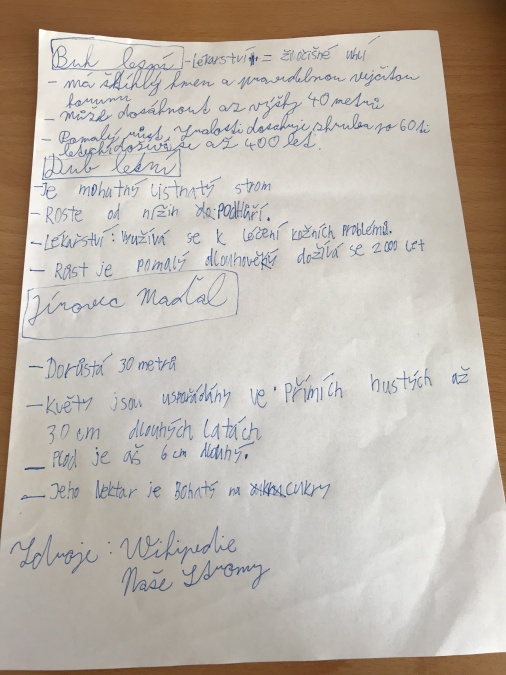 Buk lesní - Lékařství = živočišné uhlí
- má štíhlý kmen a pravidelnou vejčitou
korunu
- Může dosáhnout až výšky 40 metrů
- Pomalý růst. Zralosti dosahuje zhruba po 60ti
letech dožívá se až 400 let.
Dub lesní
- Je mohutný listnatý strom
- Roste od nížin do podhůří.
- Lékařství: využívá se k léčení kožních problémů.
- Růst je pomalý dlouhověký dožívá se 2000 let
Jírovec Maďal
- Dorůstá 30 metrů
- Květy jsou uspořádány ve přímích hustých až
30 cm dlouhých latách
- Plod je aš 6 cm dlouhý.
- Jeho Nektar je Bohatý na cukry
Zdroje: Wikipedie
Naše Stromy